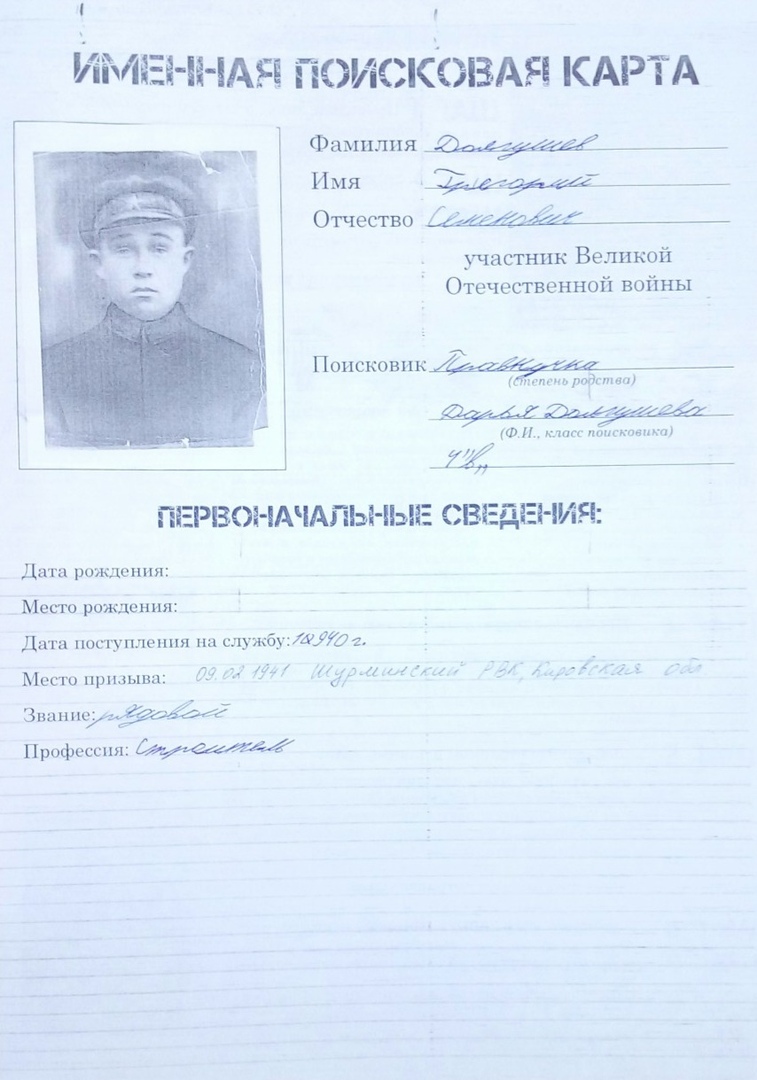 ИМЕННАЯ ПОИСКОВАЯ КАРТА
Фамилия Долгушев
Имя Григорий
Отчество Семенович
участник Великой
Отечественной войны
Поисковик Правнучка
(степень родства)
Дарья Долгушева
(Ф.И., класс поисковика)
4"в"
ПЕРВОНАЧАЛЬНЫЕ СВЕДЕНИЯ:
Дата рождения:
Место рождения:
Дата поступления на службу: 1940 г.
Место призыва: 09.02 1941 Шурминский РВК, Кировская обл
Звание: рядовой
Профессия: Строитель